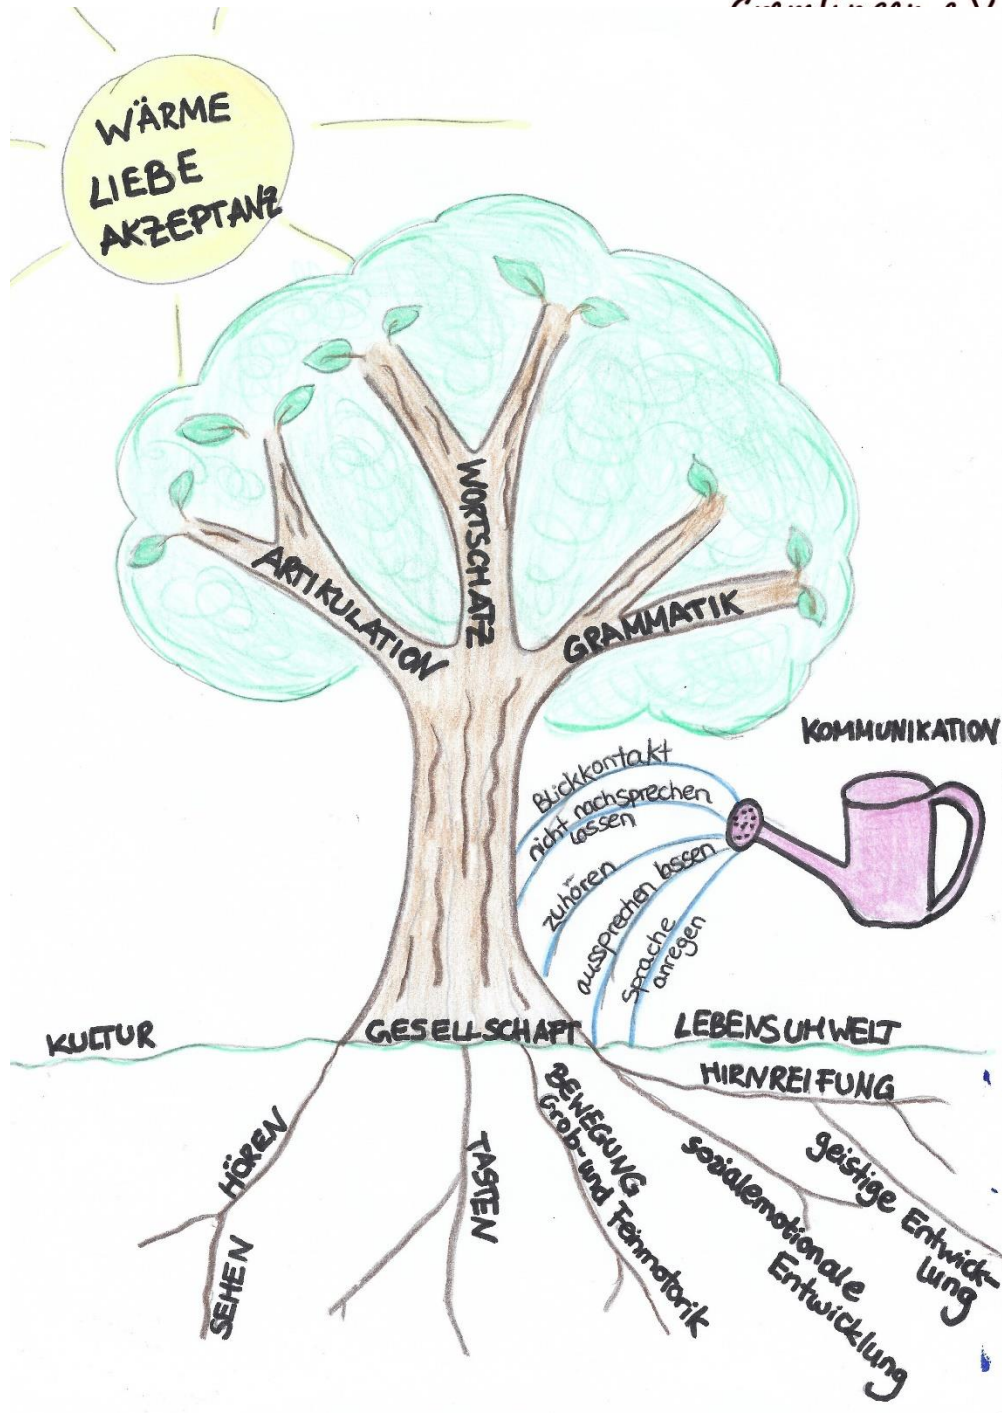 WÄRME
LIEBE
AKZEPTANZ
ARTIKULATION
WORTSCHATZ
GRAMMATIK
KOMMUNIKATION
Blickkontakt
nicht nachsprechen
lassen
zuhören
aussprechen lassen
sprache
anregen
KULTUR
GESELLSCHAFT
LEBENSUMWELT
HIRNREIFUNG
HÖREN
SEHEN
TASTEN
BEWEGUNG
Grob- und Feinmotorik
sozialemotionale
Entwicklung
geistige Entwick-
lung